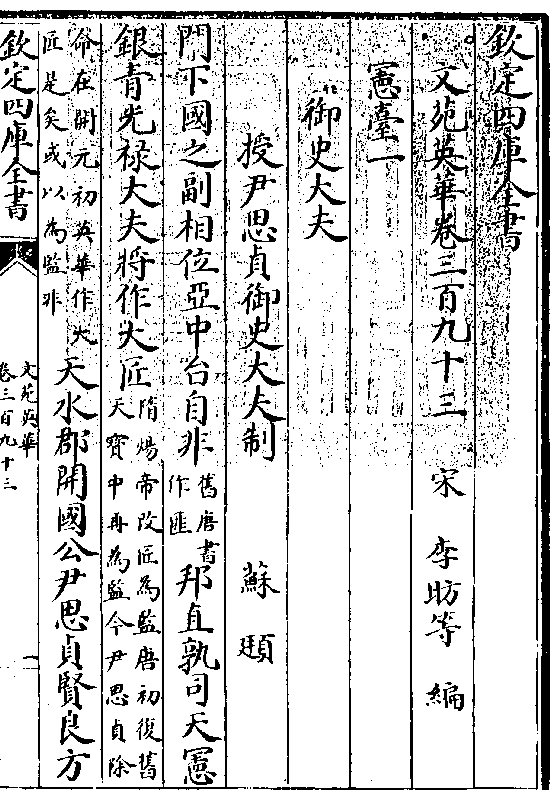 欽定四庫全書
文苑英華卷三百九十三　宋　李昉等　編
憲臺一
御史大夫
授尹思貞御史大夫制　蘇頲
門下國之副相位亞中台自非
舊唐書
作匪
邦直孰司天憲
銀青光禄大夫將作大匠
隋煬帝改匠為監唐初復舊
天寶中再為監今尹思貞除
命在開元初英華作大
匠是矣或以為監非
天水郡開國公尹思貞賢良方
欽定四庫全書
文苑英華
卷三百九十三
一